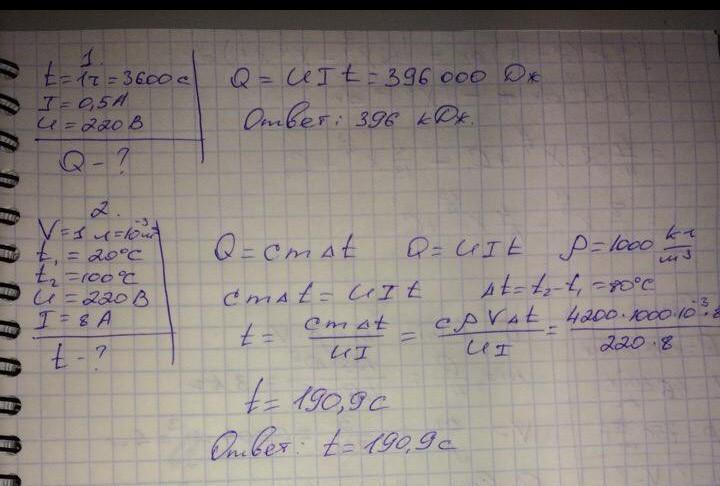 1.
t = 1ч = 3600 с
I = 0,5 А
U = 220 В
Q - ?
Q = UIt = 396 000 Дж
Ответ: 396 кДж.
2.
V = 1 л = 10⁻³ м³
t₁ = 20°C
t₂ = 100°C
U = 220 В
I = 8 А
t - ?
Q = cmΔt Q = UIt ρ = 1000 кг/м³
cmΔt = UIt Δt = t₂ - t₁ = 80°C
t = cmΔt/UI = cρVΔt/UI = 4200·1000·10⁻³·8/220·8
t = 190,9 с
Ответ: t = 190,9 с